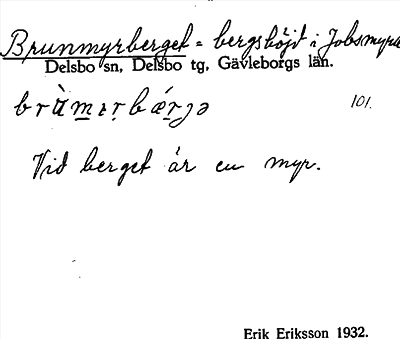 Brunmyrberget = bergshöjd i Jobsmyra
Delsbo sn, Delsbo tg, Gävleborgs län.
brùmɪrbǽrjə 101.
Vid berget är en myr.
Erik Eriksson 1932.